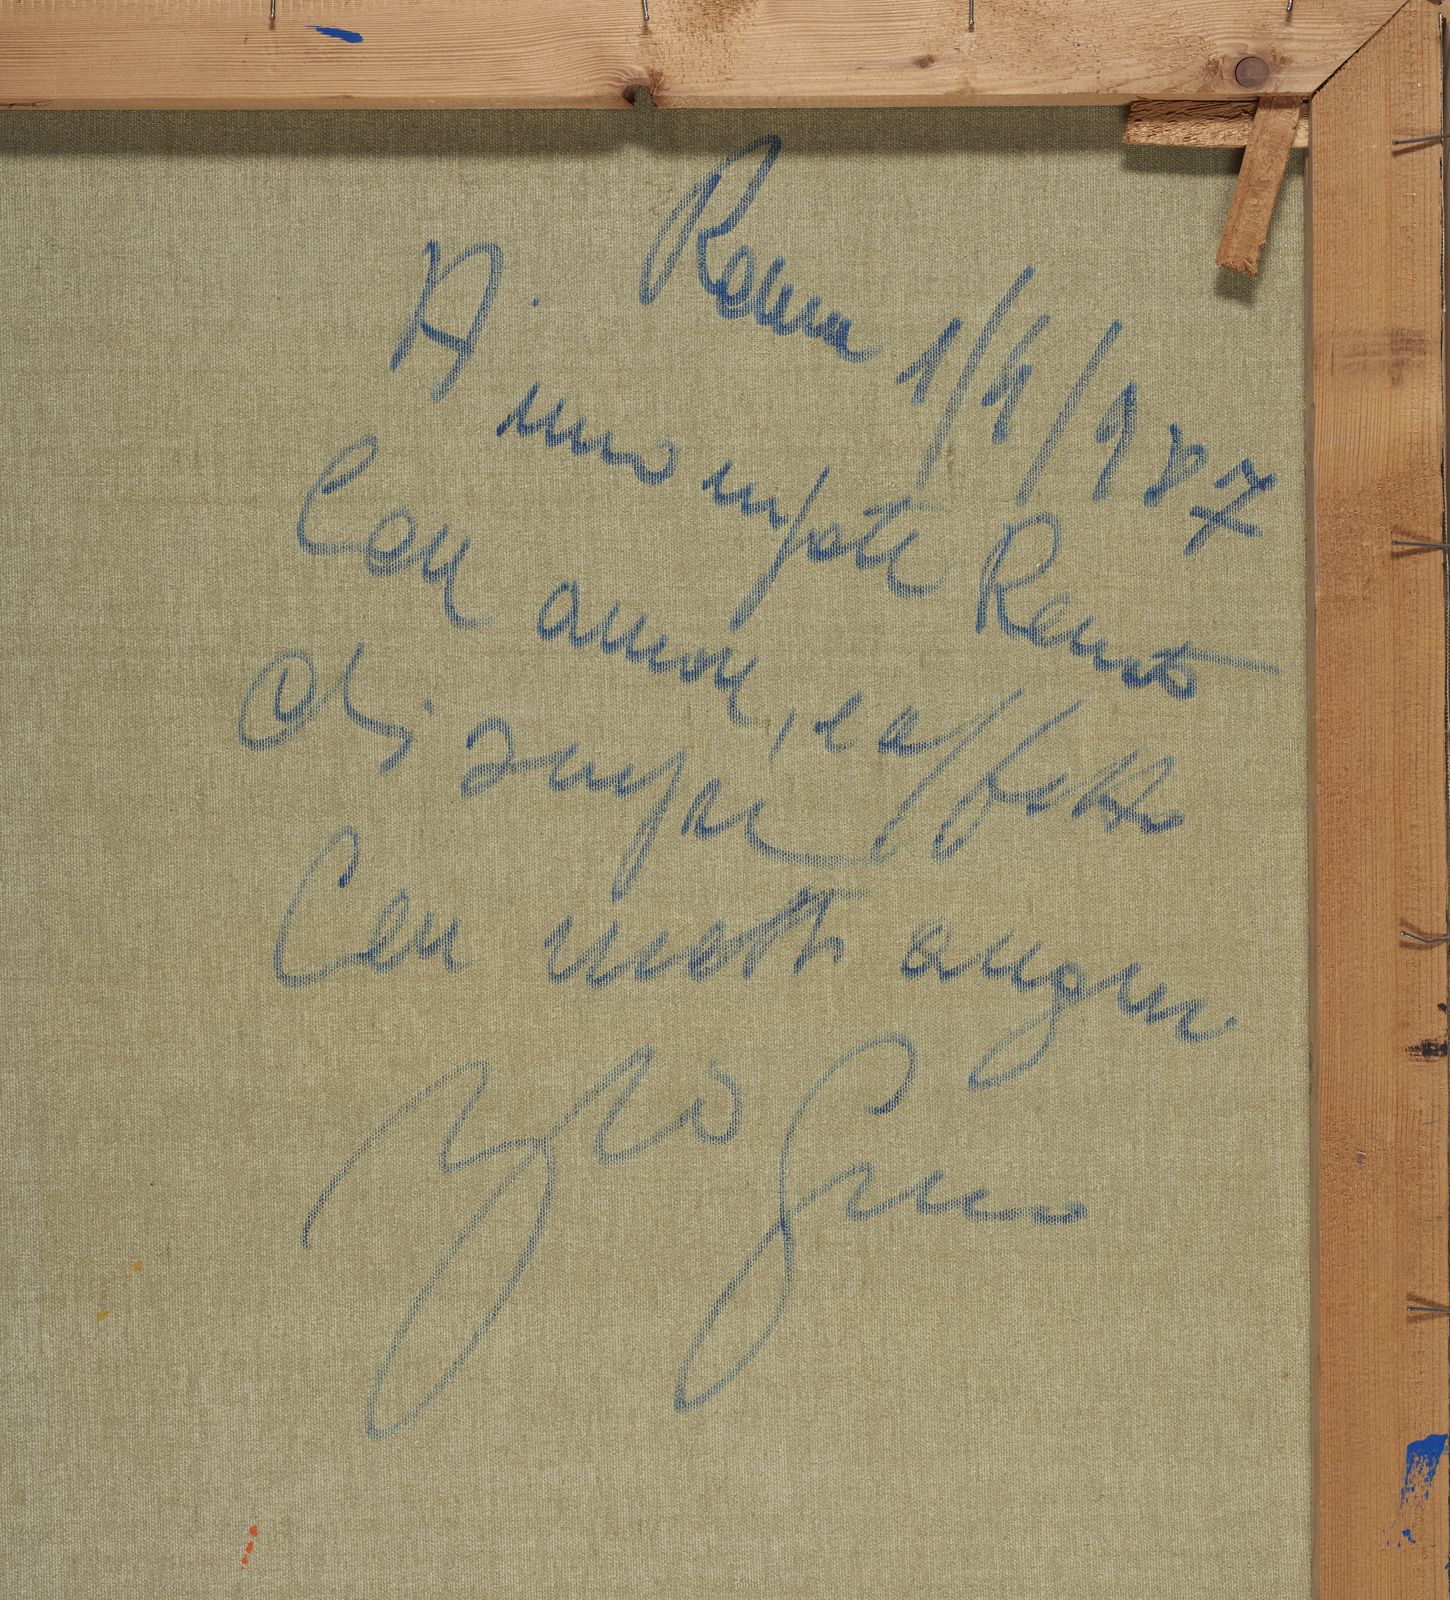 Roma 1/9/987
A mio nipote Renato
Con amore, e affetto
di sempre
Con molti auguri
zio